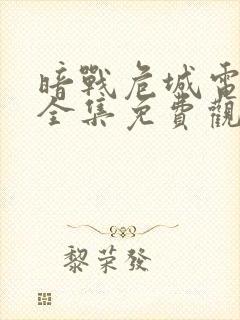 暗戰危城電
全集免費觀
黎荣發